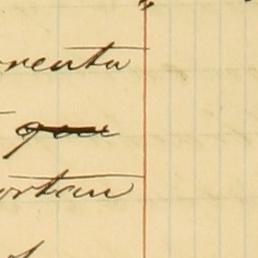 renta
que
ortan